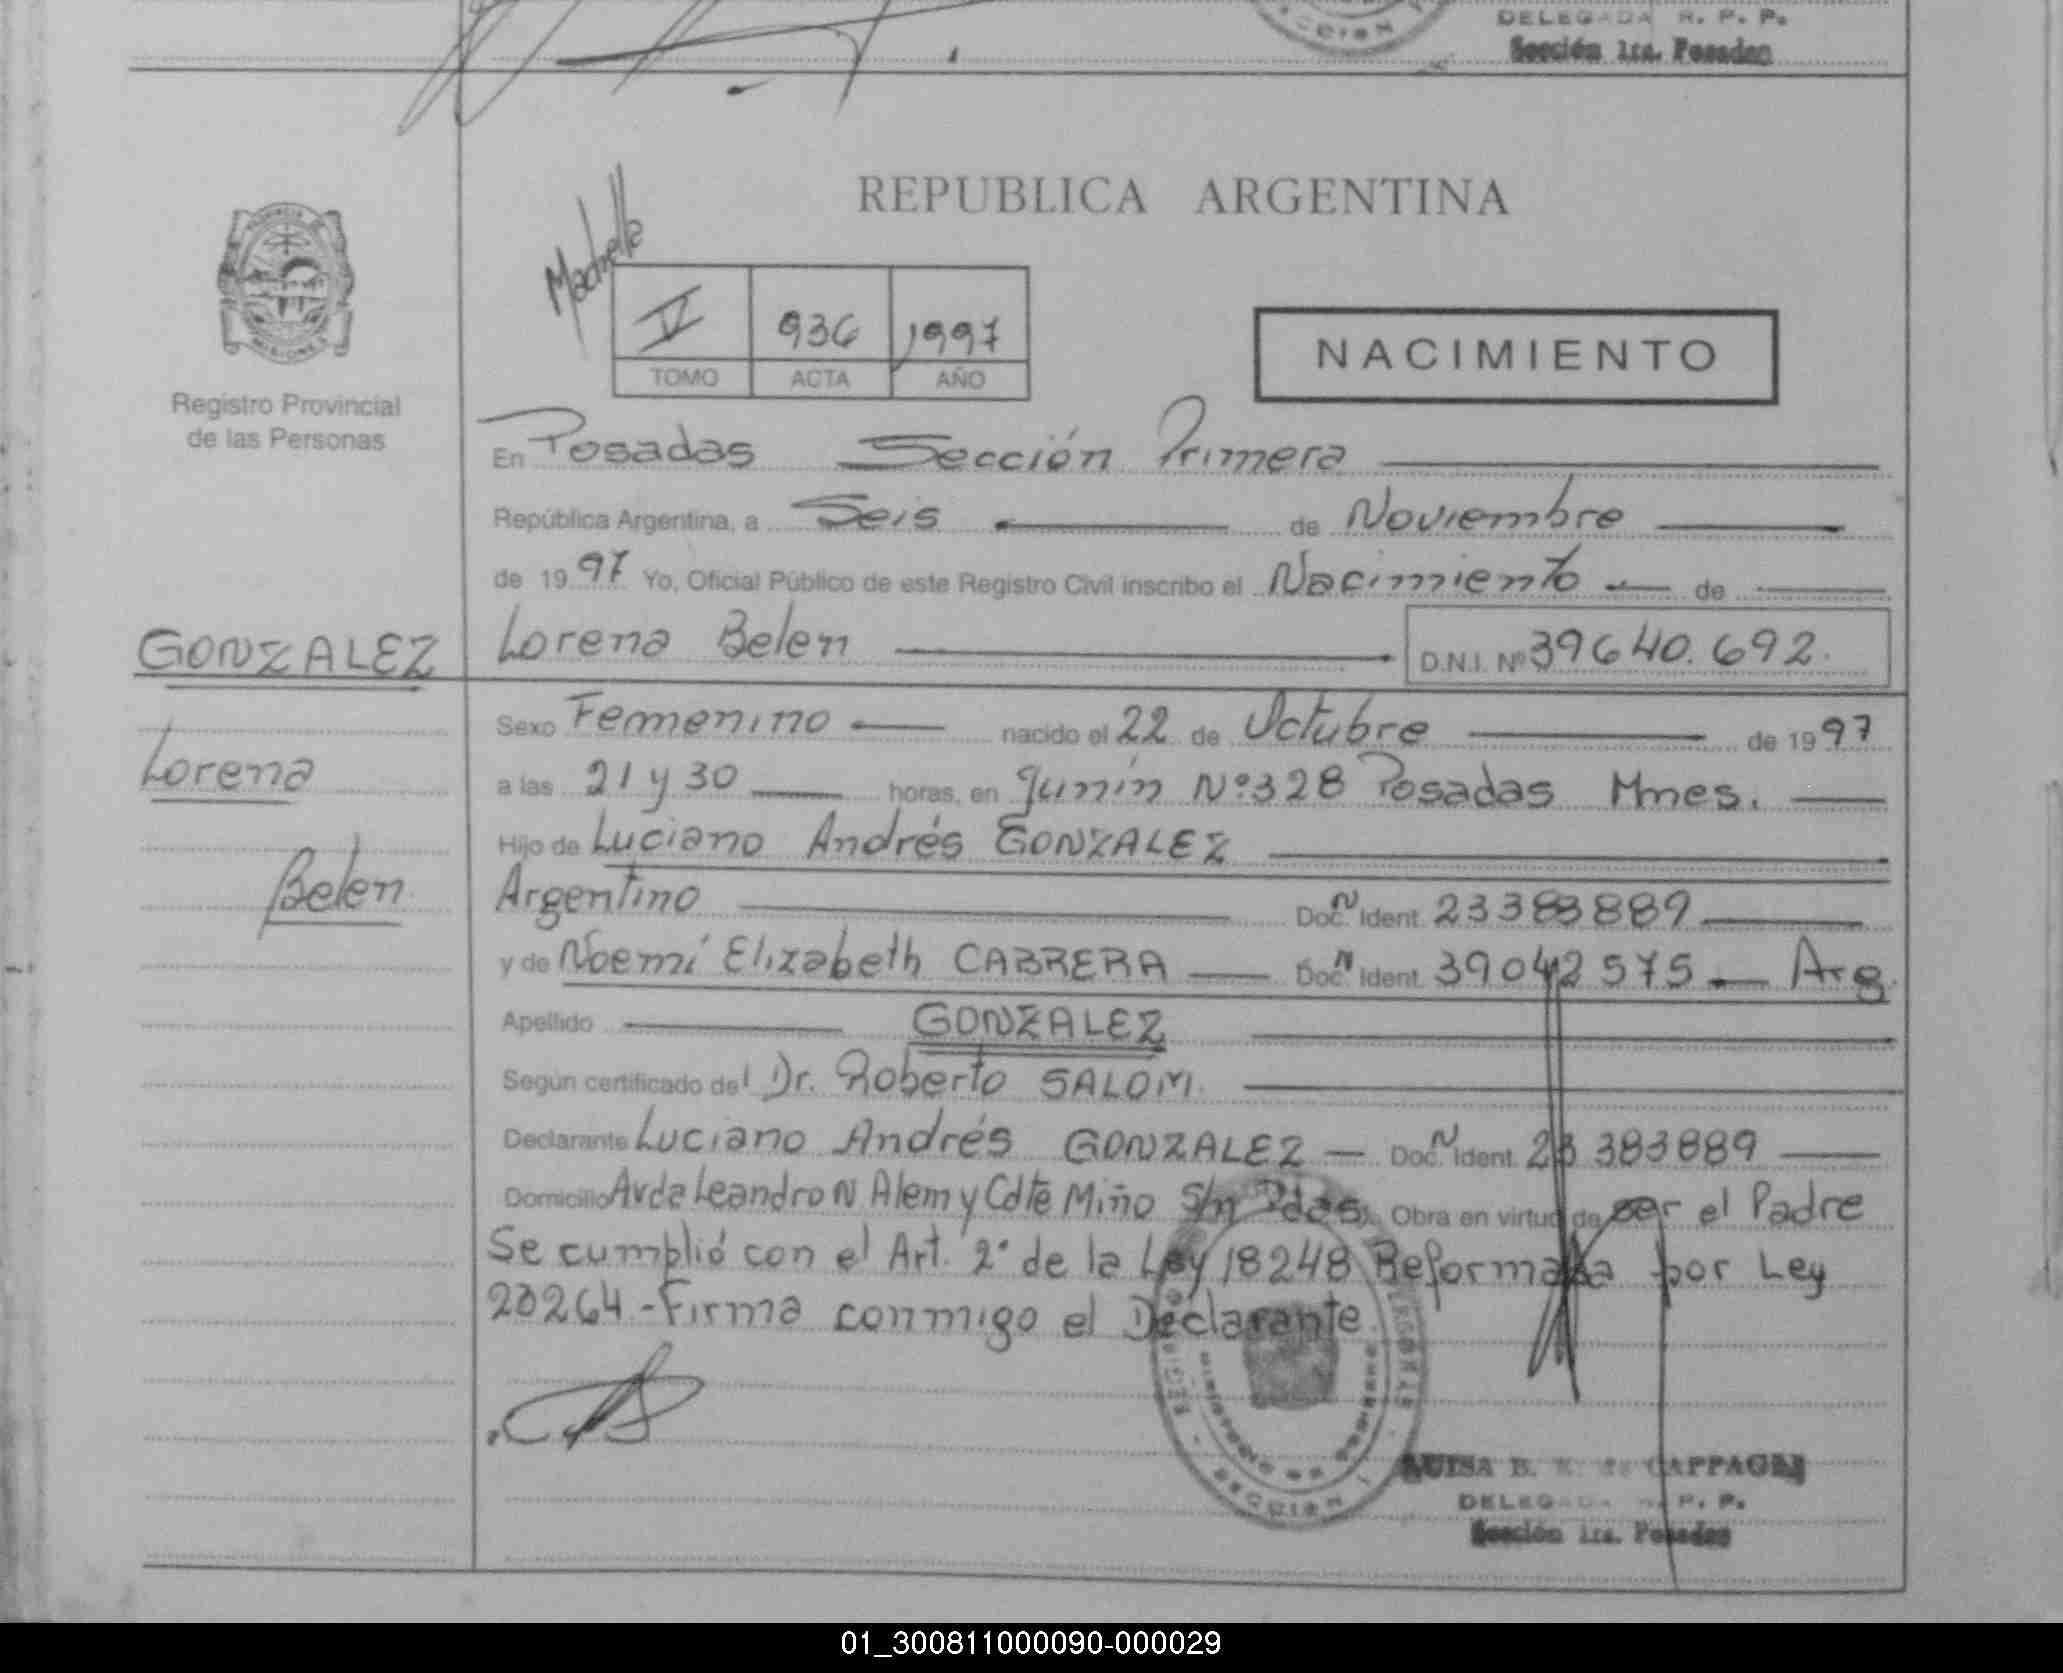 DELEGADA R. P. P.
Sección 1ra. Posadas
REPUBLICA ARGENTINA
PROVINCIA
MISIONES
TOMO V ACTA 936 AÑO 1997
NACIMIENTO
Registro Provincial
de las Personas
En Posadas Sección Primera
República Argentina, a Seis de Noviembre
de 1997 Yo, Oficial Público de este Registro Civil inscribo el Nacimiento de
GONZALEZ Lorena Belen D.N.I. Nº 39640.692.
Sexo Femenino nacido el 22 de Octubre de 1997
Lorena
a las 21 y 30 horas, en Junín Nº 328 Posadas Mnes.
Hijo de Luciano Andrés GONZALEZ
Belen
Argentino Doc. N Ident. 23383889
y de Noemí Elizabeth CABRERA Doc. N Ident. 39042575 Arg.
Apellido GONZALEZ
Según certificado del Dr. Roberto SALOM.
Declarante Luciano Andrés GONZALEZ Doc. N Ident. 23383889
Domicilio Avda Leandro N Alem y Cdte Miño S/n Pdas. Obra en virtud de ser el Padre
Se cumplió con el Art. 2º de la Ley 18248 Reformada por Ley
23264.- Firma conmigo el Declarante.
SECCION 1
LUISA B. CAPPAGLI
DELEGADA R. P. P.
Sección 1ra. Posadas
01_300811000090-000029